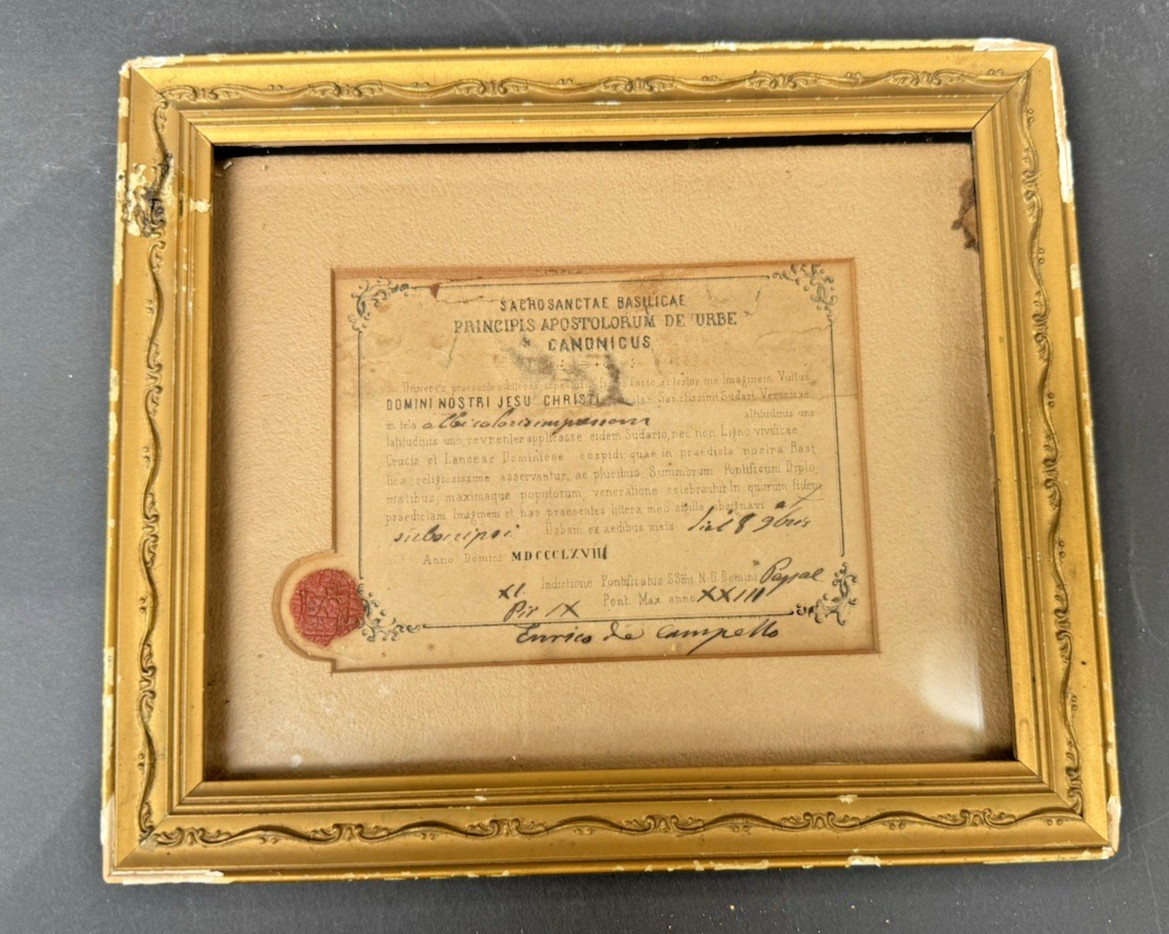 SACROSANCTAE BASILICAE
PRINCIPIS APOSTOLORUM DE URBE
CANONICUS
Universis praesentes ac testor me Imaginem Vultus
DOMINI NOSTRI JESU CHRISTI Sanctissimi Sudari Veronicae
in tela albi coloris impressam altitudinis unc
latitudinis unc reverenter applicasse eidem Sudario, nec non Ligno vivificae
Crucis et Lanceae Dominicae cuspidi quae in praedicta nostra Basi
lica religiosissime asservantur, ac pluribus Summorum Pontificum Diplo,
matibus, maximaque populorum, veneratione celebrantur In quorum fidem
praedictam Imaginem et has praesentes littera meo sigillo obsignavi at
subscripsi Dabam ex aedibus meis die 8 9bris
Anno Domini MDCCCLXVIII
XI Indictione Pontificatus SSmi N. D. Domini Papae
Pii IX Pont. Max. anno XXIII
Enrico de Campello